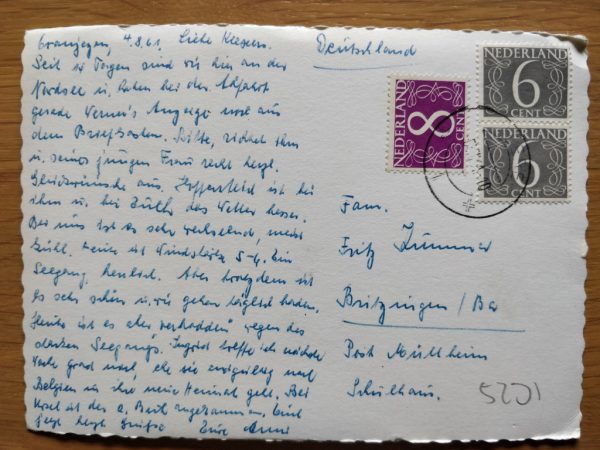 4.8.61. Liebe
Seit 14 Tagen sind wir hier an der
Nordsee u. haben bei der Abfahrt
gerade Werner's Anzeige noch aus
dem Briefkasten. Bitte, richtet ihm
u. seiner jungen Frau recht herzl.
Glückwünsche aus. Hoffentlich ist bei
ihm u. bei Euch das Wetter besser.
Bei uns ist es sehr wechselnd, meist
kühl. Heute ist Windstärke 5-6. Ein
Seegang, herrlich. Aber trotzdem ist
es sehr schön u. wir gehen täglich baden.
Heute ist es aber verboten wegen des
starken Seegang's. Ingrid treffe ich nächste
Woche grad noch, ehe sie endgültig nach
Belgien in ihre neue Heimat geht. Bei
ist das 2. angekommen. Seid
herzl. Grüße Eure
Deutschland
NEDERLAND
6
CENT
NEDERLAND
8
CENT
NEDERLAND
6
CENT
Fam.
Fritz
Britzingen/Ba
Post Müllheim
Schulhaus.